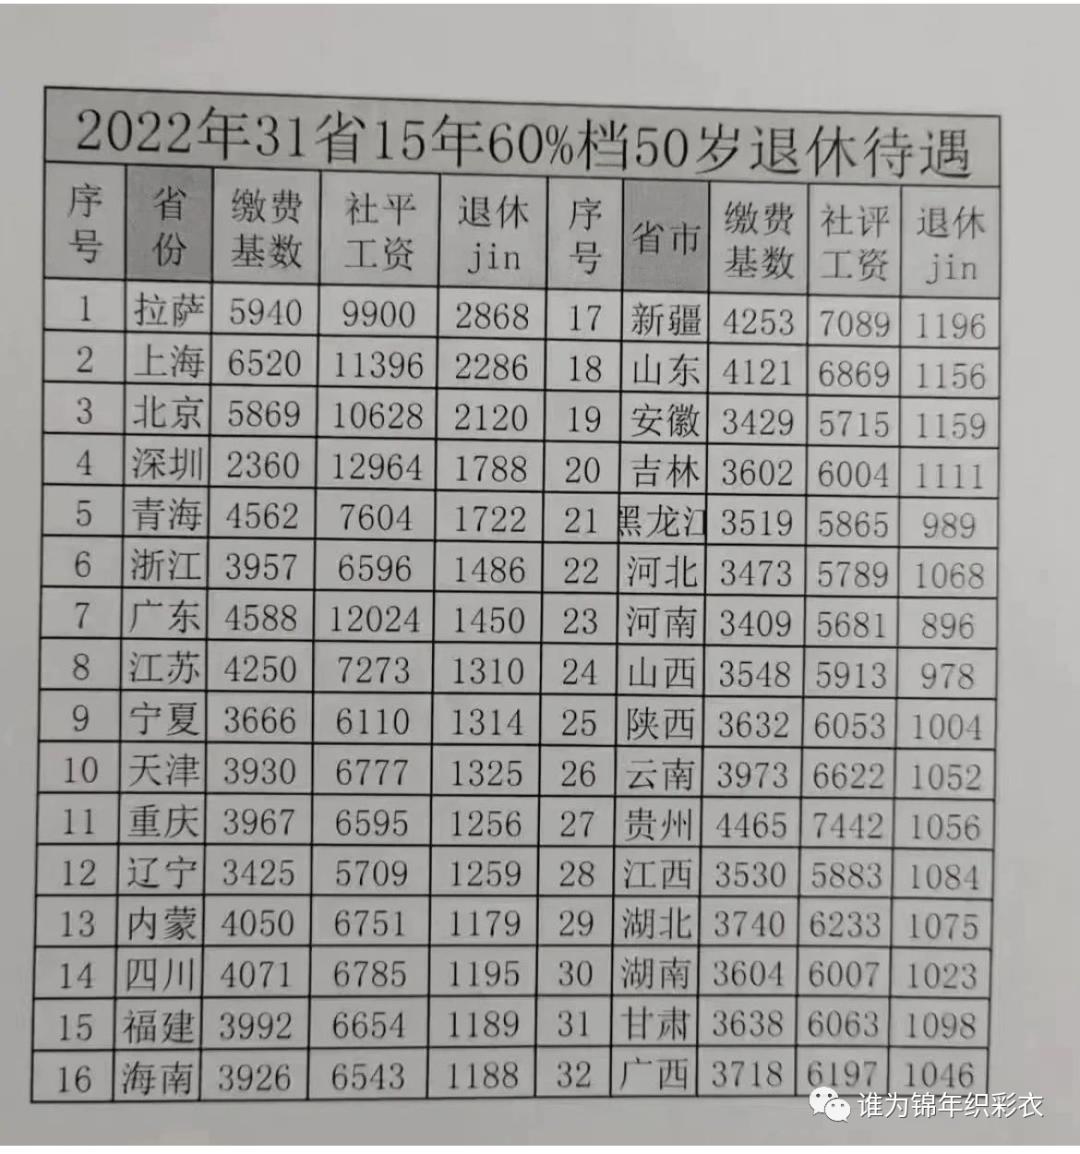 2022年31省15年60%档50岁退休待遇
序号 省份 缴费基数 社平工资 退休jin 序号 省市 缴费基数 社评工资 退休jin
1 拉萨 5940 9900 2868 17 新疆 4253 7089 1196
2 上海 6520 11396 2286 18 山东 4121 6869 1156
3 北京 5869 10628 2120 19 安徽 3429 5715 1159
4 深圳 2360 12964 1788 20 吉林 3602 6004 1111
5 青海 4562 7604 1722 21 黑龙江 3519 5865 989
6 浙江 3957 6596 1486 22 河北 3473 5789 1068
7 广东 4588 12024 1450 23 河南 3409 5681 896
8 江苏 4250 7273 1310 24 山西 3548 5913 978
9 宁夏 3666 6110 1314 25 陕西 3632 6053 1004
10 天津 3930 6777 1325 26 云南 3973 6622 1052
11 重庆 3967 6595 1256 27 贵州 4465 7442 1056
12 辽宁 3425 5709 1259 28 江西 3530 5883 1084
13 内蒙 4050 6751 1179 29 湖北 3740 6233 1075
14 四川 4071 6785 1195 30 湖南 3604 6007 1023
15 福建 3992 6654 1189 31 甘肃 3638 6063 1098
16 海南 3926 6543 1188 32 广西 3718 6197 1046
谁为锦年织彩衣